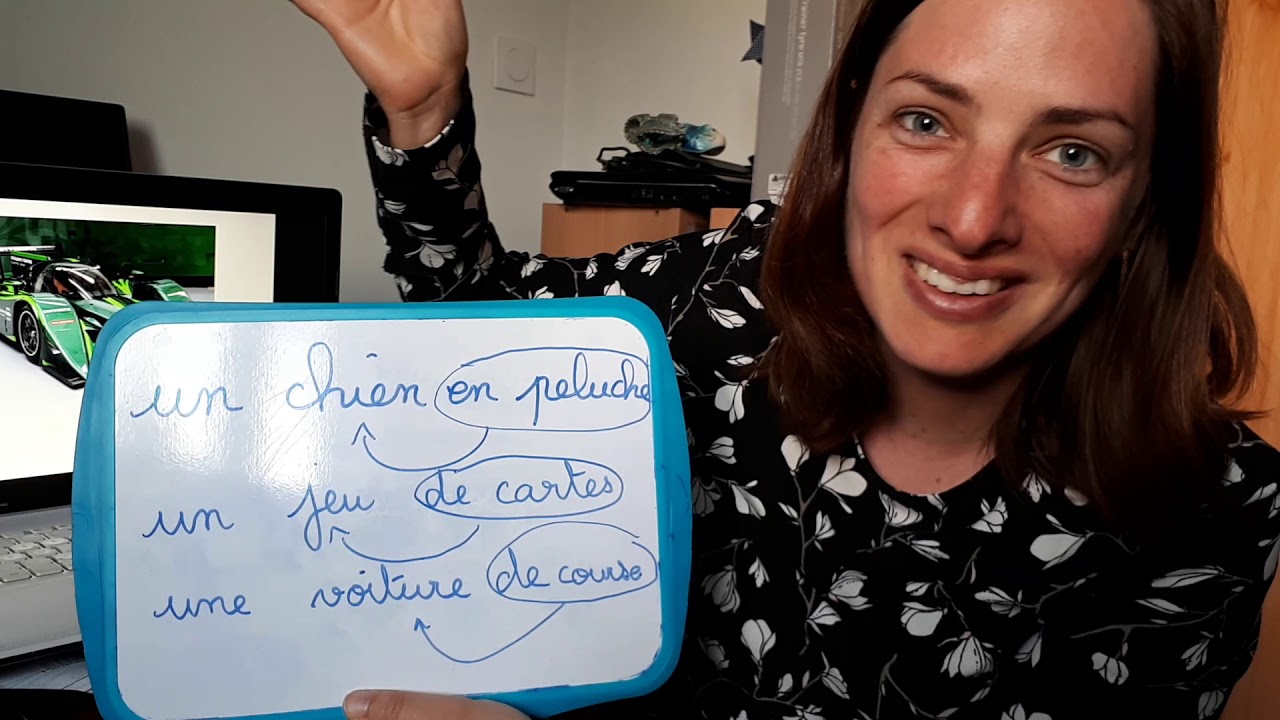 un chien en peluche
un jeu de cartes
une voiture de course